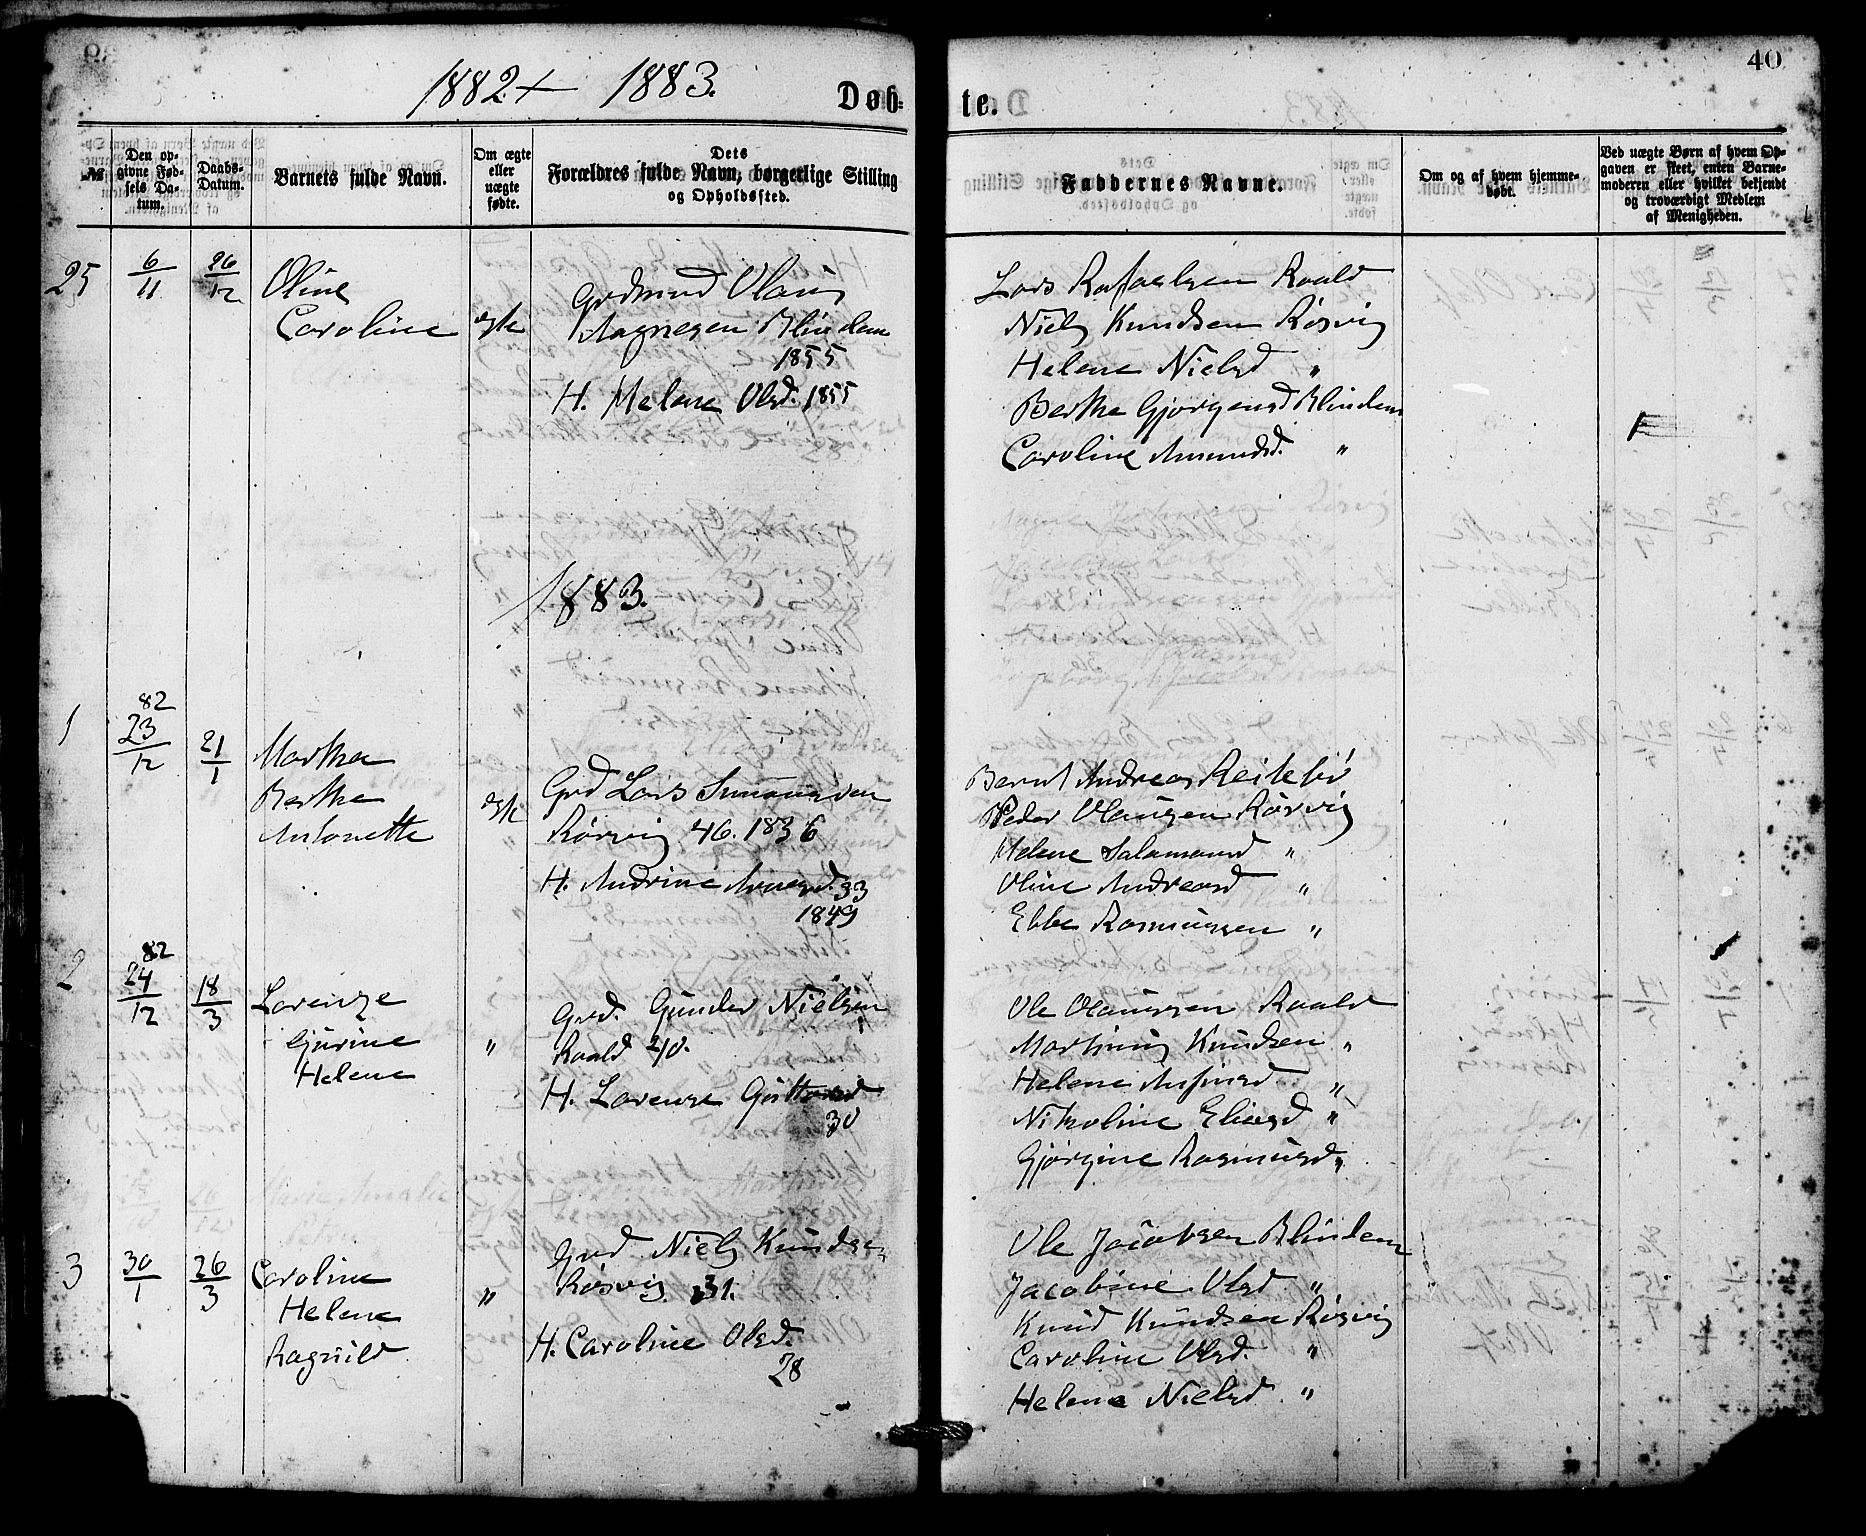 40
1882 + 1883.
Døb-
te.
№
Den op-
givne Fød-
sels Da-
tum.
Daabs-
Datum.
Barnets fulde Navn.
Om ægte
eller
uægte
fødte.
Dets
Forældres fulde Navn, borgerlige Stilling
og Opholdssted.
Faddernes Navne.
Om og af hvem hjemme-
døbt.
Ved uægte Børn af hvem Op-
gaven er skeet, enten Barne-
moderen eller hvilket bekjendt
og troværdigt Medlem
af Menigheden.
25
6/11
26/12
Oline
Caroline
ægte
Grdmnd Olaus
Magnesen Blindem
1855
H. Melene Olsd. 1855
Lars Rafaelsen Roald
Niels Knudsen Røsvig
Helene Nielsd "
Berthe Gjørgensd Blindem
Caroline Amundsd. "
1883.
1
82
23/12
21/1
Marthea
Berthe
Antonette
ægte
Grd Lars
Rørvig 46. 1836
H. Andrine 33
1849
Bernt Andreas Reitebø
Peder Olausen Rørvig
Helene Salamonsd "
Oline Andreasd "
Ebbe Rasmussen "
2
82
24/12
18/3
Lorenze
Gjurine
Helene
"
Grd. Gunder Nielsen
Roald 40.
H. Lorenze
30
Ole Olaussen Roald
Martinus Knudsen "
Helene Anfinsd "
Nikoline Eliasd "
Gjørgine Rasmusd "
3
30/1
26/3
Caroline
Helene
Ragnild
"
Grd Niels Knudsen
Røsvig 31.
H. Caroline Olsd.
28
Ole Jacobsen Blindem
Jacobine Olsd "
Knud Knudsen Røsvig
Caroline Olsd. "
Helene Nielsd "